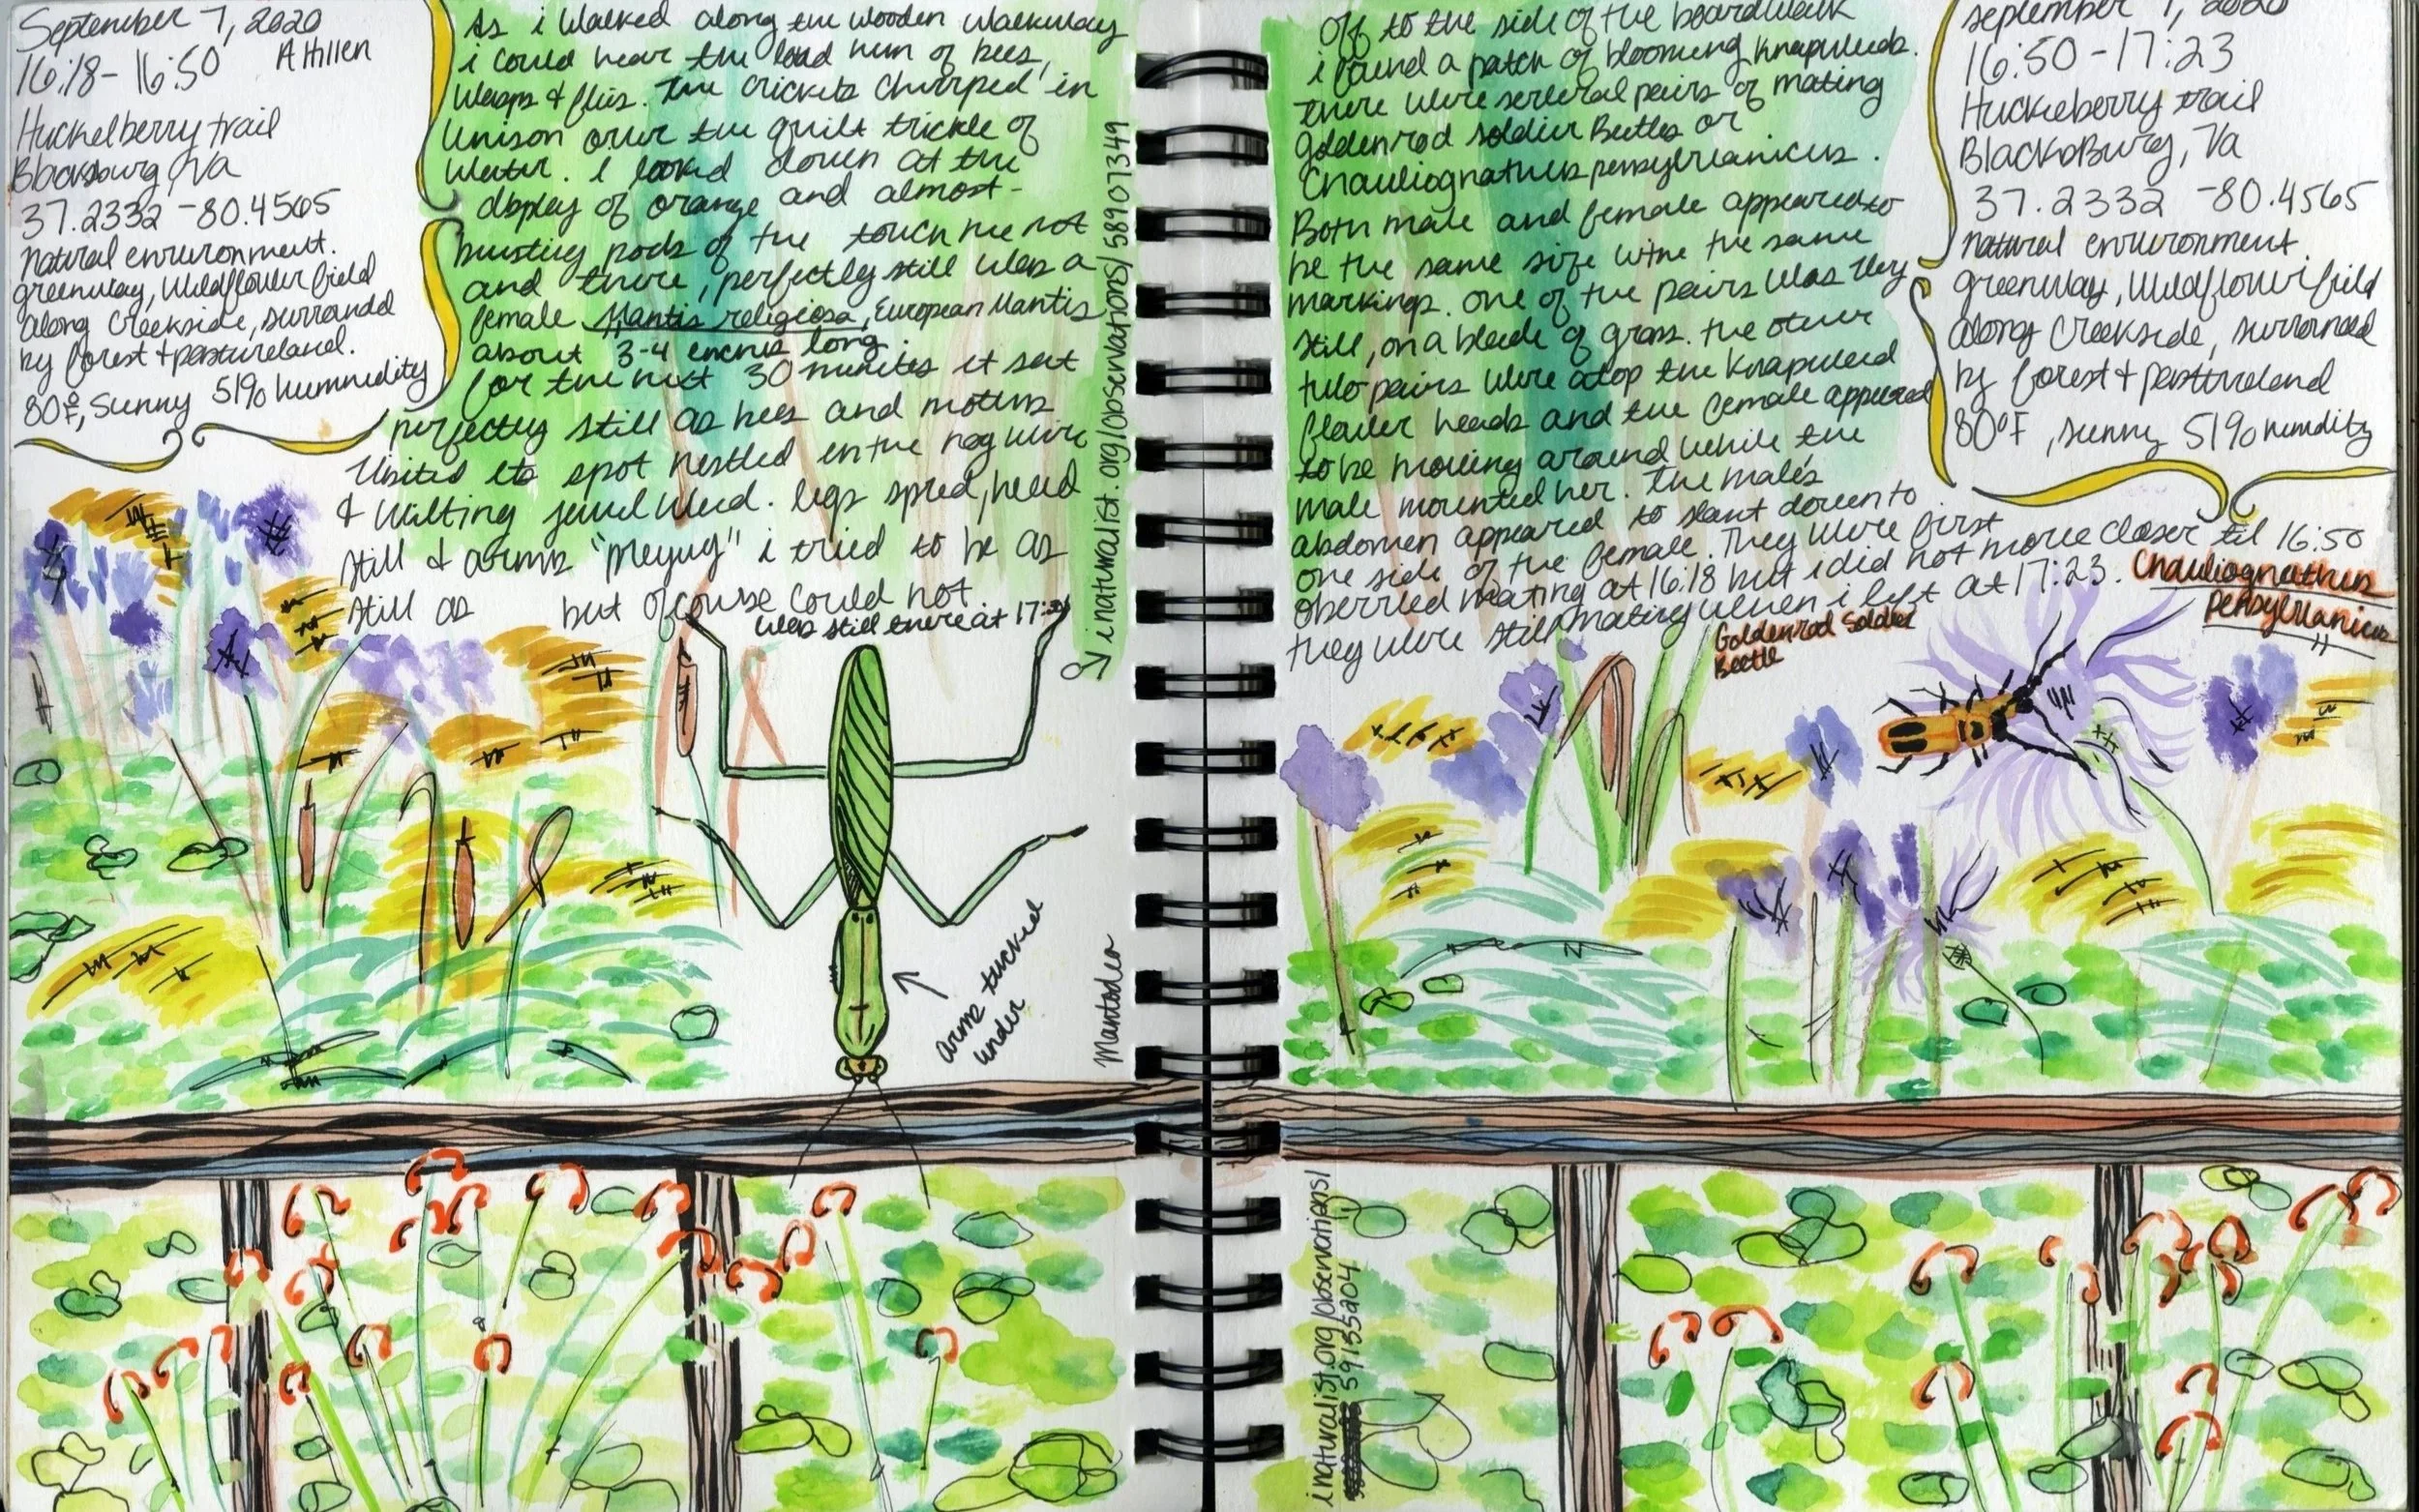 September 7, 2020
16:18 - 16:50 A Hillen
Huckelberry trail
Blacksburg, Va
37.2332 -80.4565
natural environment.
greenway, wildflower field
along creekside, surrounded
by forest + pastureland.
80°F, sunny 51% humnidity
As i walked along the wooden walkway
i could hear the loud hum of bees,
wasps & flies. The crickets chirped in
unison over the quiet trickle of
water. I looked down at the
display of orange and almost-
bursting pods of the touch me not
and there, perfectly still was a
female Mantis religiosa, European Mantis
about 3-4 inches long.
for the next 30 minutes it sat
perfectly still as bees and moths
visited its spot nestled in the hog wire
& wilting jewel weed. legs spred, head
still & arms i tried to be as
still as but of course could not
was still there at 17:
inaturalist.org/observations/58907349
arms tucked
under
Mantodea
off to the side of the boardwalk
i found a patch of blooming knapweeds.
there were several pairs of mating
goldenrod soldier Beetles or
Chauliognathus pensylvanicus.
Both male and female appeared to
be the same size with the same
markings. one of the pairs was very
still, on a blade of grass. the other
two pairs were atop the knapweed
flower heads and the female appeared
to be moving around while the
male mounted her. the male's
abdomen appeared to slant down to
one side of the female. They were first
oberved mating at 16:18 but i did not move closer til 16:50
they were still mating when i left at 17:23.
september 7, 2020
16:50 - 17:23
Huckleberry trail
Blacksburg, Va
37.2332 -80.4565
natural environment
greenway, wildflower field
along creekside, surrounded
by forest + pastureland
80°F, sunny 51% humidity
Chauliognathus
Pensylvanicus
Goldenrod Soldier
Beetle
inaturalist.org/observations/
59135204